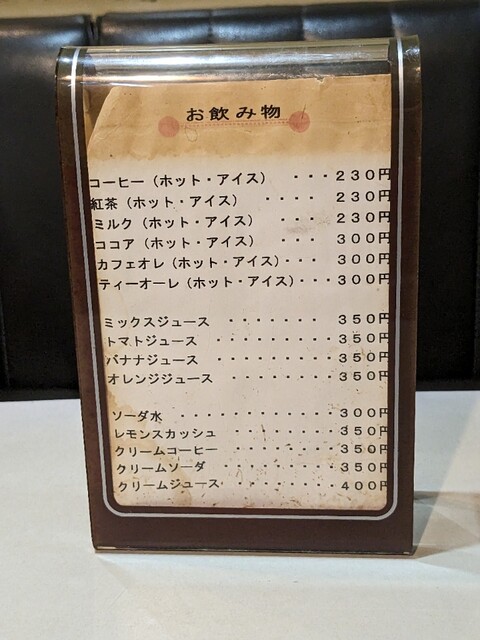 お飲み物
コーヒー（ホット・アイス）　・・・２３０円
紅茶（ホット・アイス）　・・・・　２３０円
ミルク（ホット・アイス）　・・・　２３０円
ココア（ホット・アイス）　・・・　３００円
カフェオレ（ホット・アイス）・・・　３００円
ティーオーレ（ホット・アイス）・・・３００円
ミックスジュース　・・・・・・・　３５０円
トマトジュース　・・・・・・・・　３５０円
バナナジュース　・・・・・・・・　３５０円
オレンジジュース　・・・・・・・・３５０円
ソーダ水　・・・・・・・・・・・・３００円
レモンスカッシュ　・・・・・・・・３５０円
クリームコーヒー　・・・・・・・・３５０円
クリームソーダ　・・・・・・・・・３５０円
クリームジュース・・・・・・・・・４００円